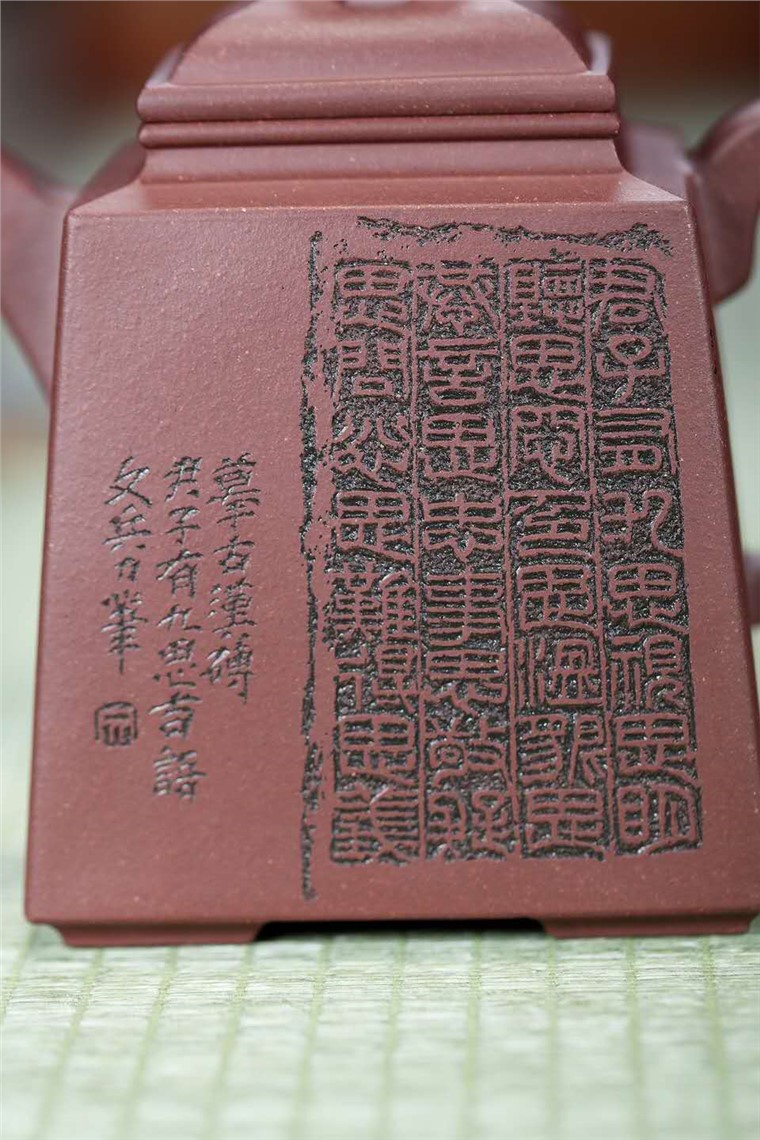 君子有九思視思明
聽思聰色思溫貌思
恭言思忠事思敬疑
思問忿思難得思義
摹古漢磚
君子有九思吉語
文兵刀筆